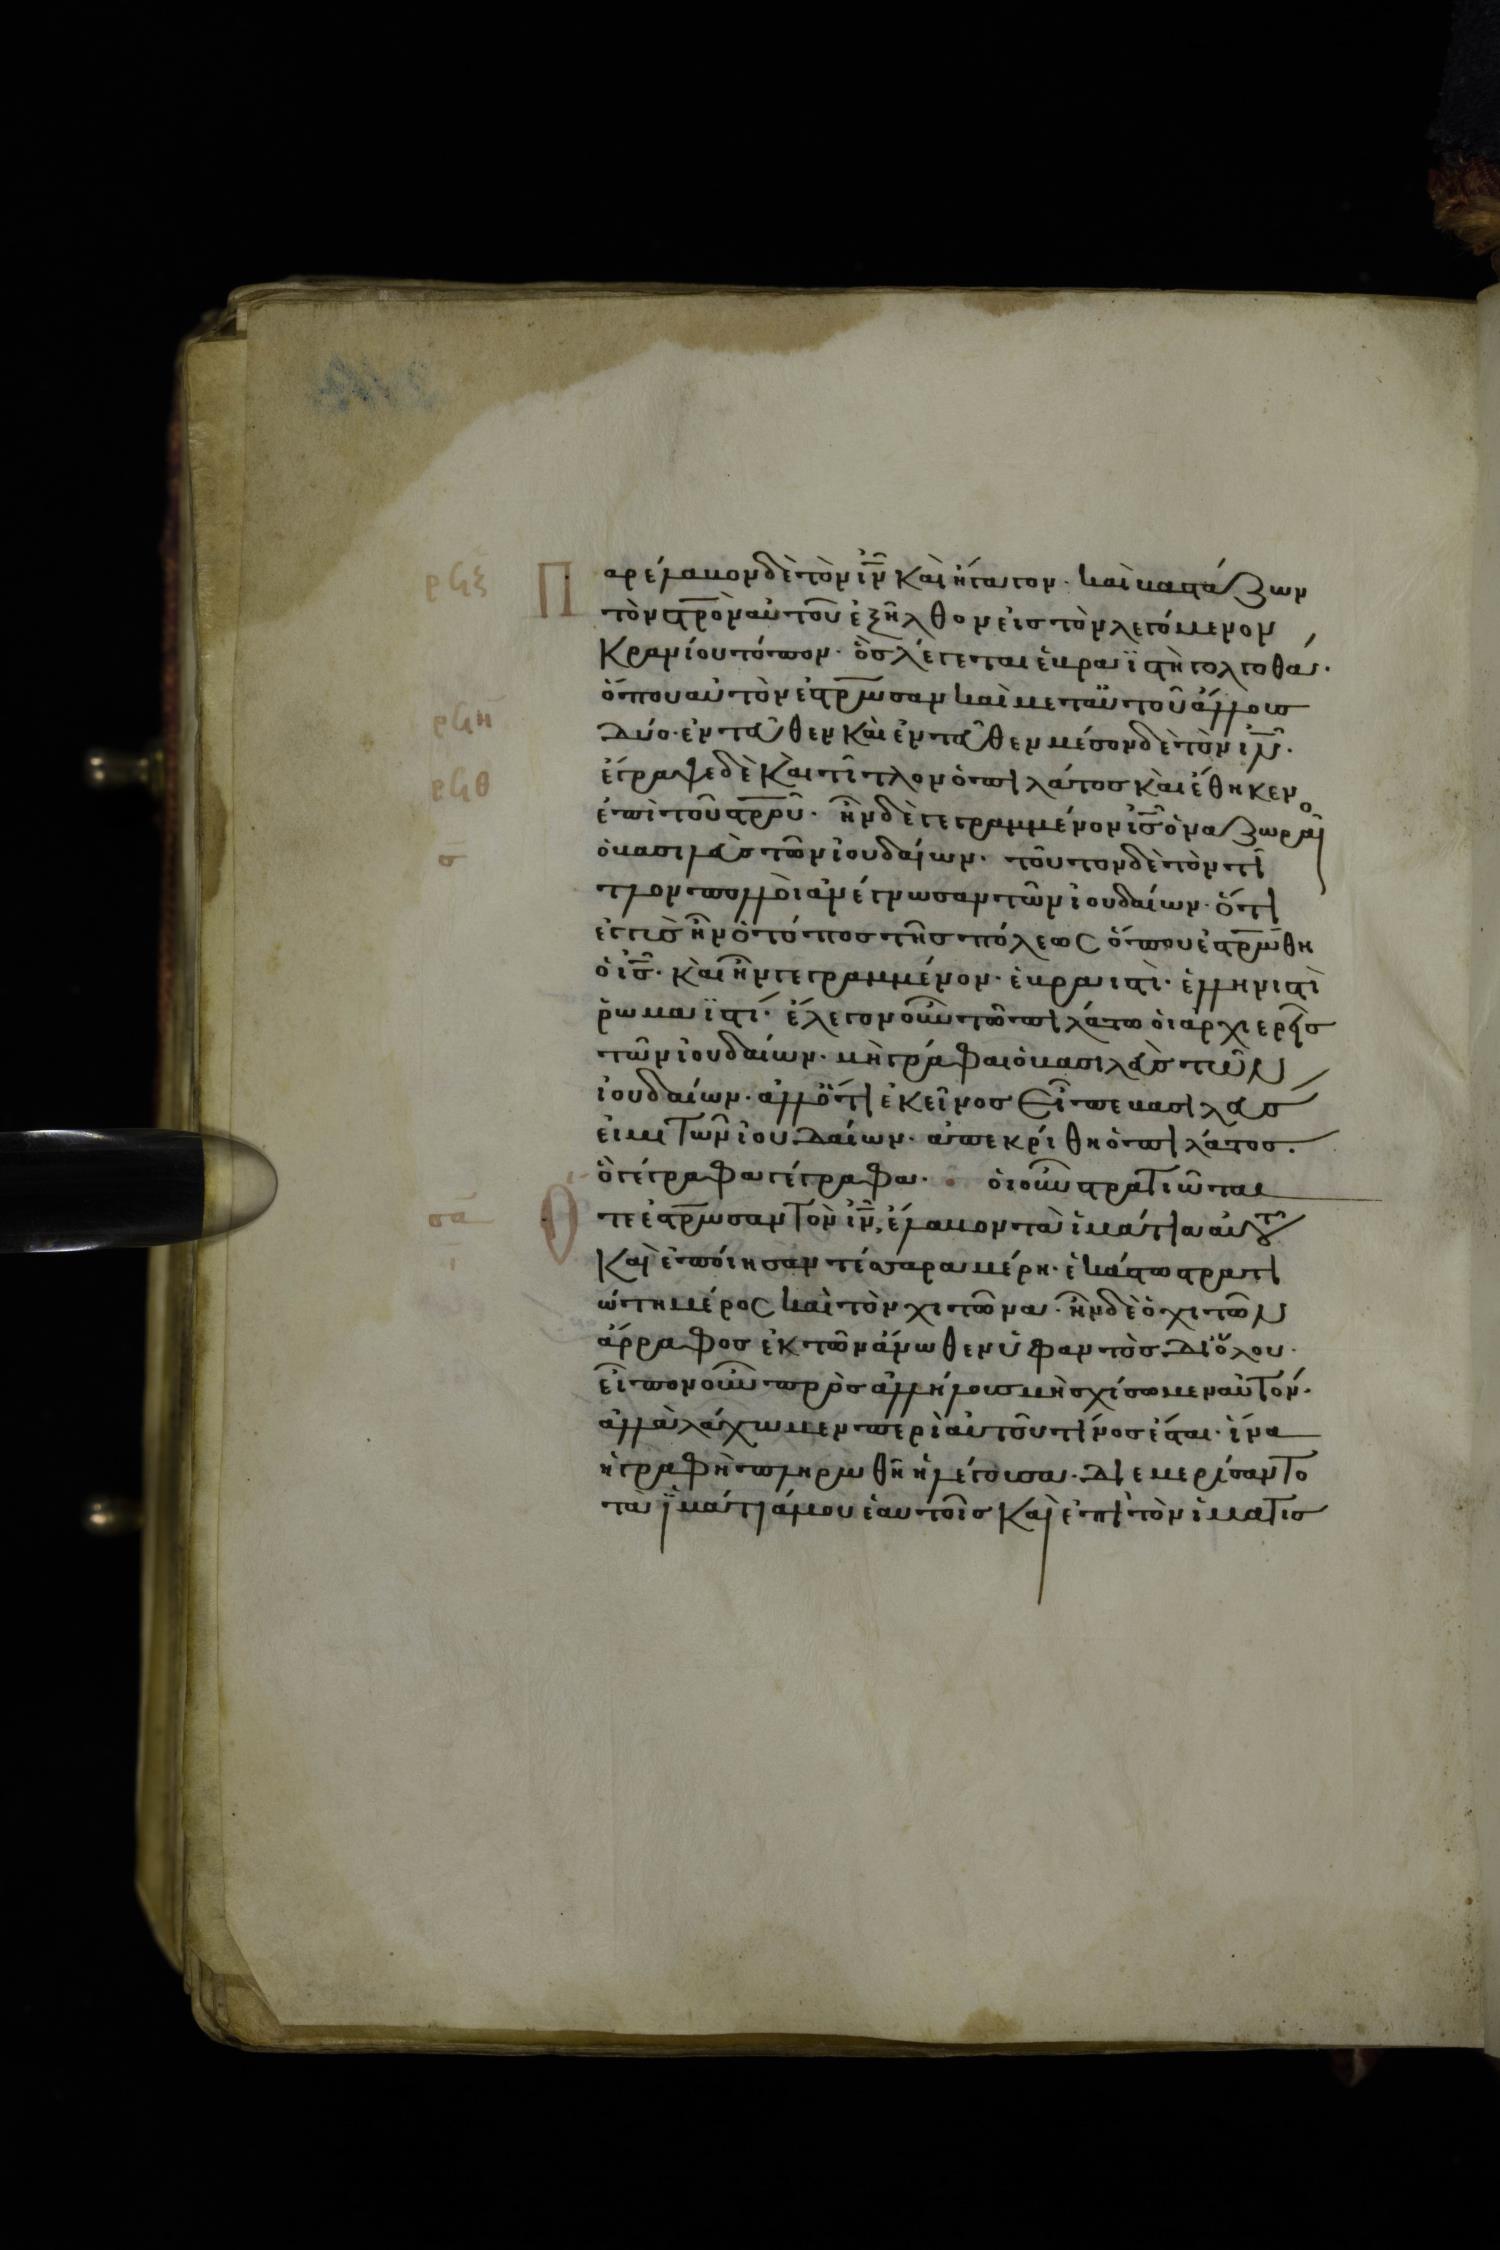 ρϟζ Παρέλαβον δὲ τὸν ἰν̅ καὶ ἤγαγον· καὶ βαστάζων
τὸν στρ̅ὸν αὐτοῦ ἐξῆλθον εἰς τὸν λεγόμενον
Κρανίου τόπον· ὃς λέγεται ἑβραϊστὴ γολγοθά·
ρϟη ὅπου αὐτὸν ἐστρ̅ωσαν καὶ μετ αὐτοῦ ἄλλους
δύο· ἐντεῦθεν καὶ ἐντεῦθεν μέσον δὲ τὸν ἰν̅·
ρϟθ ἔγραψε δὲ καὶ τῖτλον ὁ πιλάτος καὶ ἔθηκεν
ἐπὶ τοῦ στρ̅οῦ· ἦν δὲ γεγραμμένον ἰς̅ ὁ ναζωραῖο
σ̅ ὁ βασιλεὺς τῶν ἰουδαίων· τοῦτον δὲ τὸν τί
τλον πολλοὶ ἀνέγνωσαν τῶν ἰουδαίων· ὅτι
ἐγγὺς ἦν ὁ τόπος τῆς πόλεως ὅπου ἐστρ̅ώθη
ὁ ἰς̅· καὶ ἦν γεγραμμένον· ἑβραιστὶ· ἑλληνιστὶ
ῥωμαϊστί· ἔλεγον οὖν τῶ πιλάτω οἱ ἀρχιερεῖς
τῶν ἰουδαίων· μὴ γράφαι ὁ βασιλεὺς τῶν
ἰουδαίων· ἀλλ ὅτι ἐκεῖνος εἶπε βασιλεύς
εἰμι τῶν ἰουδαίων· ἀπεκρίθη ὁ πιλάτος·
ὃ γέγραφα γέγραφα· οἱ οὖν στρατιῶται
σα̅ Ὅτε ἐστρ̅ωσαν τὸν ἰν̅, ἔλαβον τὰ ἱμάτια αὐτοῦ
Καὶ ἐποίησαν τέσσαρα μέρη· ἑκάστω στρατι
ώτη μέρος καὶ τὸν χιτῶνα· ἦν δὲ ὁ χιτῶν
ἄρραφος ἐκ τῶν ἄνωθεν ὑφαντὸς δι ὅλου·
εἶπον οὖν πρὸς ἀλλήλους μὴ σχίσωμεν αὐτόν·
ἀλλὰ λάχωμεν περὶ αὐτοῦ τίνος ἔσται· ἵνα
ἡ γραφὴ πληρωθῆ ἡ λέγουσα· διεμερίσαντο
τὰ ἱμάτιά μου ἑαυτοῖς Καὶ ἐπὶ τὸν ἱματισ